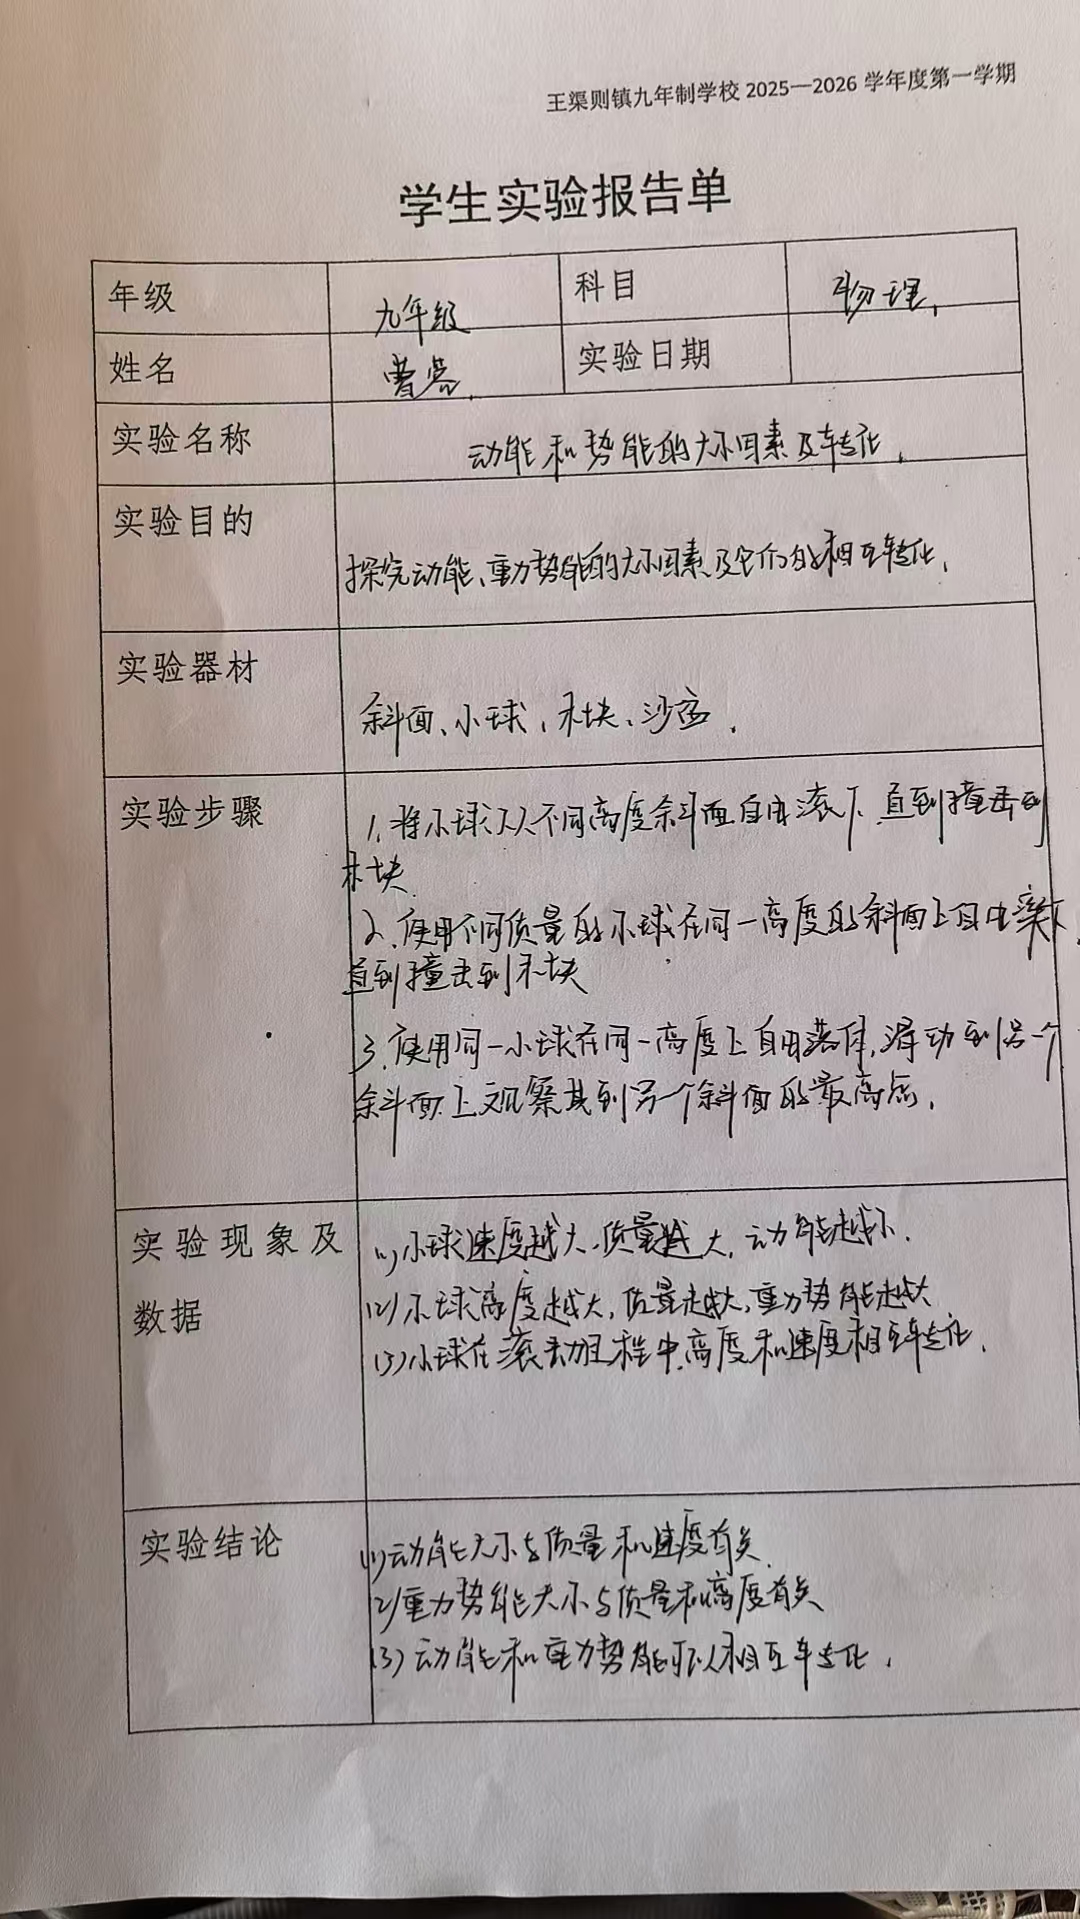 王渠则镇九年制学校 2025—2026 学年度第一学期
学生实验报告单
年级 九年级 科目 物理.
姓名 曹 实验日期
实验名称 动能和势能的大小因素及转化.
实验目的
探究动能、重力势能的大小因素及它们的相互转化.
实验器材
斜面、小球、木块、沙盒.
实验步骤
1. 将小球从不同高度斜面自由滚下直到撞击到
木块.
2. 使用不同质量的小球在同一高度的斜面上自由滚下,
直到撞击到木块
3. 使用同一小球在同一高度上自由落体,滑动到另一个
斜面上观察其到另一个斜面的最高点.
实验现象及
数据
(1)小球速度越大、质量越大,动能越大.
(2)小球高度越大,质量越大,重力势能越大
(3)小球在滚动过程中,高度和速度相互转化.
实验结论
(1)动能大小与质量和速度有关.
2)重力势能大小与质量和高度有关
(3)动能和重力势能可以相互转化.